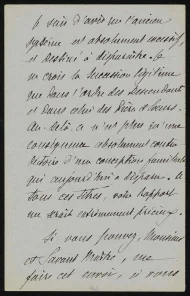 Je suis d'avis que l'ancien
système est absolument excessif
et destiné à disparaître. Je
ne crois la succession légitime
que dans l'ordre des descendants
et dans celui des frères et sœurs.
Au-delà, ce n'est plus qu'une
conséquence absolument
d'une conception familiale
qui aujourd'hui a disparu. À
tous ces titres, votre Rapport
me serait extrêmement précieux.
Si vous pouvez, Monsieur
et Savant Maître, me
faire cet envoi, je vous